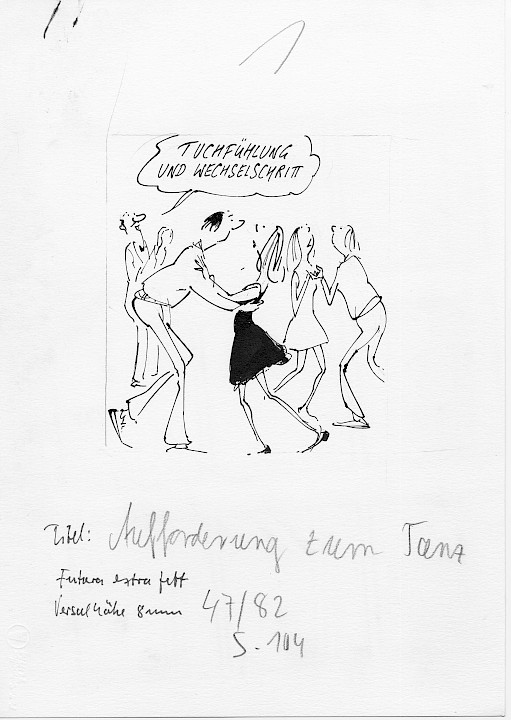 1
TUCHFÜHLUNG
UND WECHSELSCHRITT
Titel: Aufforderung zum Tanz
Futura extra fett
Versalhöhe 8mm 47/82
S. 104